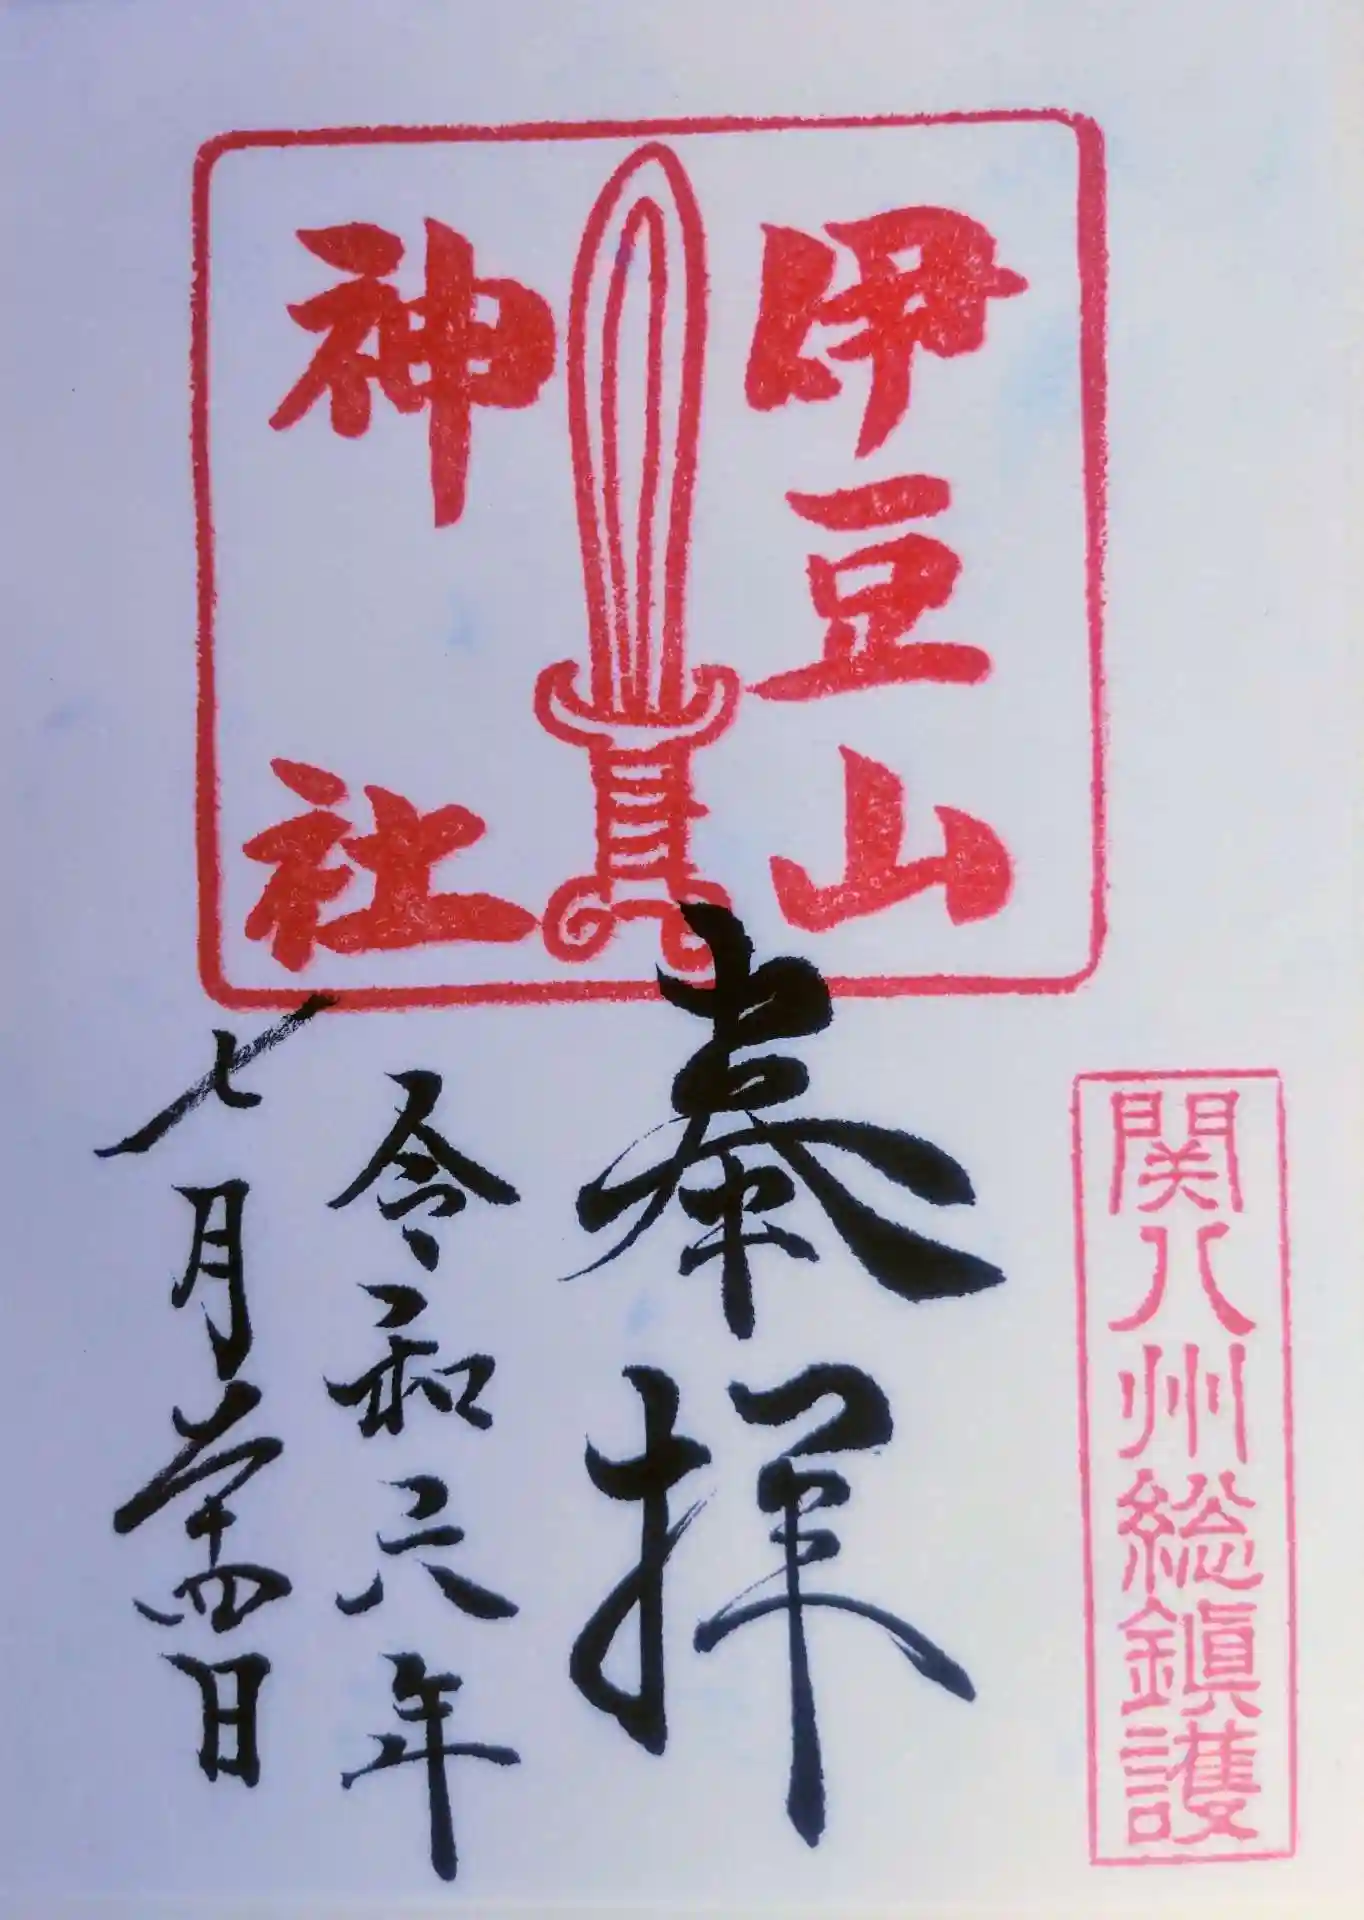 伊豆山
神社
関八州総鎮護
奉拝
令和六年
七月二十四日